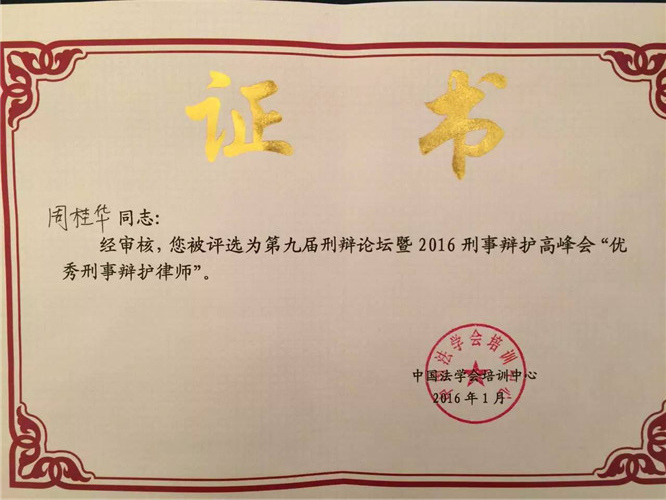 证 书
周桂华同志：
经审核，您被评选为第九届刑辩论坛暨 2016 刑事辩护高峰会“优
秀刑事辩护律师”。
中国法学会培训中心
中国法学会培训中心
2016 年 1 月